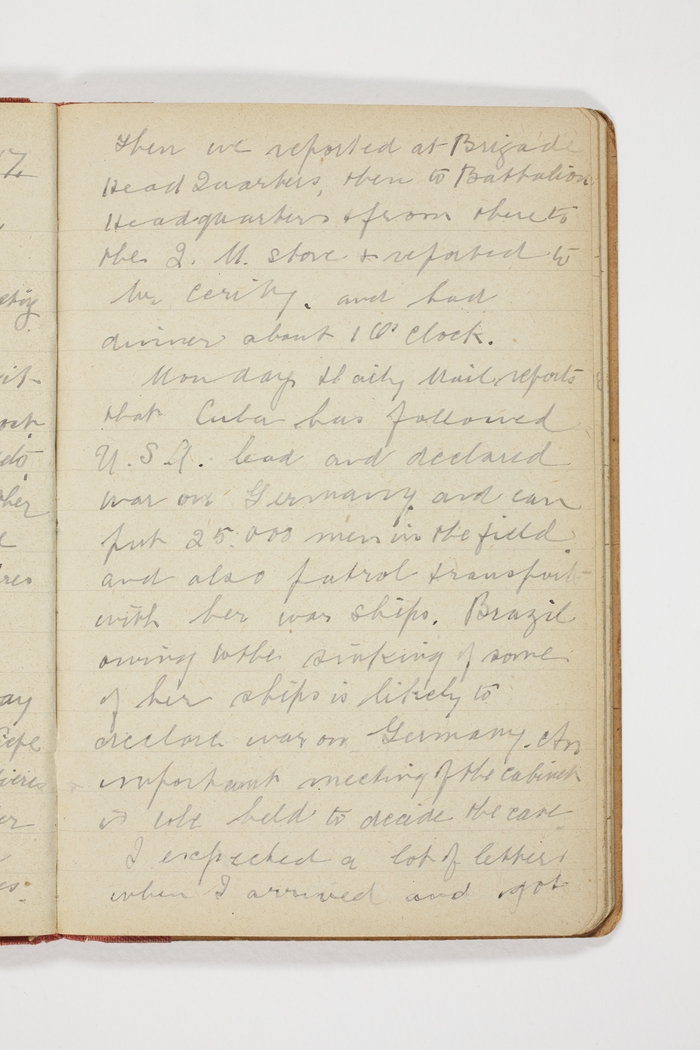 then we reported at Brigade
Head Quarters, then to Battalion
Headquarters & from there to
the Q. M. store & reported to
and had
dinner about 1 O'clock.
Monday Daily Mail reports
that Cuba has followed
U.S.A. lead and declared
war on Germany and can
put 25.000 men in the field
and also patrol transports
with her war ships. Brazil
owing to the sinking of some
of her ships is likely to
declare war on Germany. An
important meeting of the cabinet
is to be held to decide the case
I expected a lot of letters
when I arrived and got